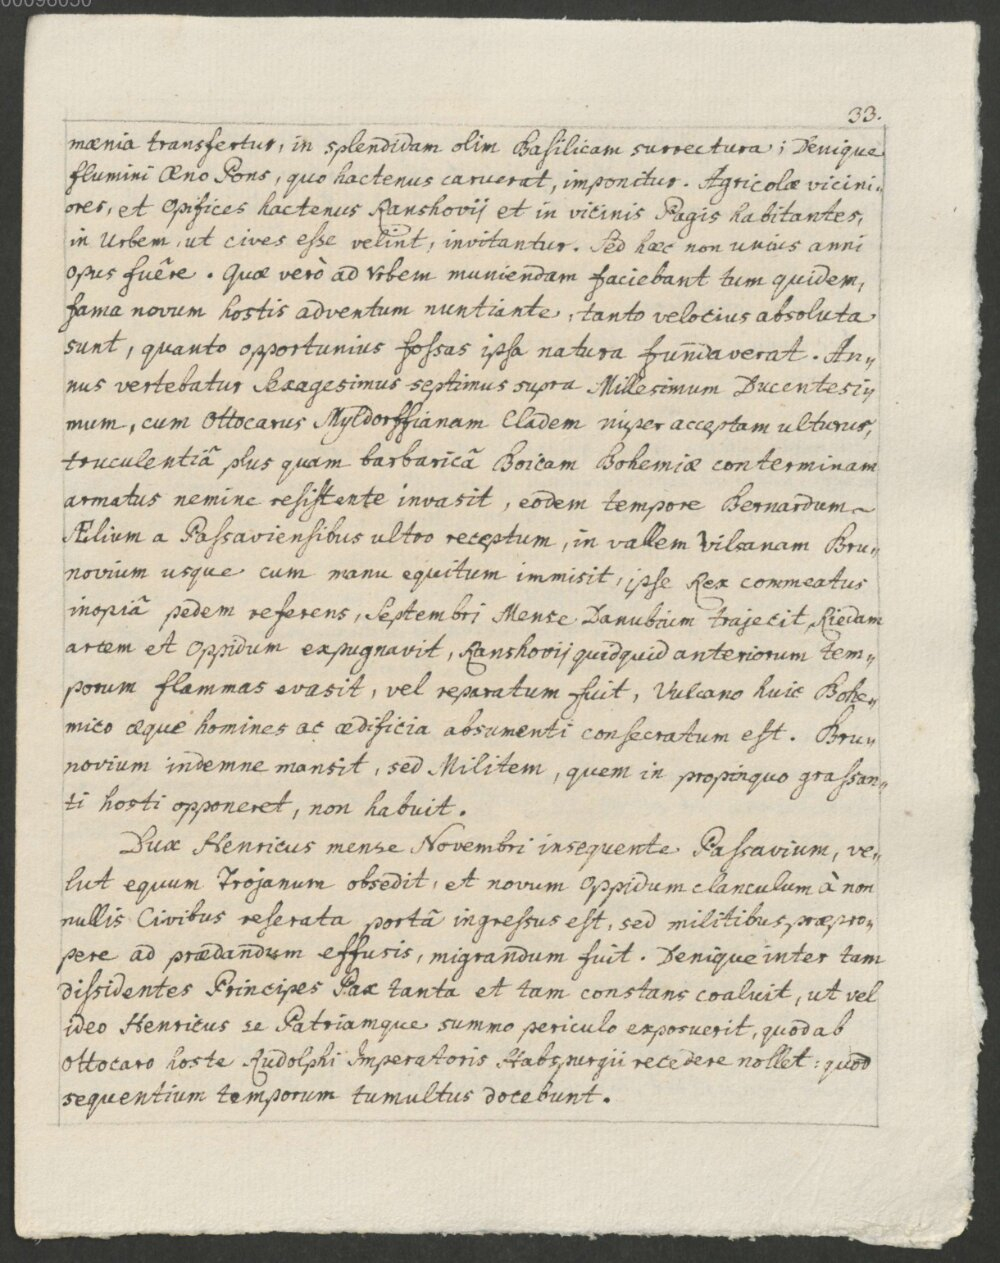 00096050
33.
mænia transfertur, in splendidam olim Basilicam surrectura; Denique
flumini Œno Pons, quo hactenus caruerat, imponitur. Agricolæ vicini=
ores, et Opifices hactenus Ranshovij et in vicinis Pagis habitantes,
in Urbem, ut cives esse velint, invitantur. Sed hæc non unius anni
opus fuêre. Quæ verò ad Vrbem muniendam faciebant tum quidem,
fama novum hostis adventum nuntiante, tanto velocius absoluta
sunt, quanto opportunius fossas ipsa natura fundaverat. An=
nus vertebatur Sexagesimus septimus supra Millesimum Ducentesi=
mum, cum Ottocarus Myldorffianam Cladem nuper acceptam ulturus,
truculentiâ plus quam barbaricâ Boicam Bohemiæ conterminam
armatus nemine resistente invasit, eodem tempore Bernardum
Ælium a Passaviensibus ultro receptum, in vallem Vilsanam Bru=
novium usque cum manu equitum immisit, ipse Rex commeatus
inopiâ pedem referens, Septembri Mense Danubium trajecit, Riedam
arcem et Oppidum expugnavit, Ranshovij quidquid anteriorum tem=
porum flammas evasit, vel reparatum fuit, Vulcano huic Bohe=
mico æque homines ac ædificia absumenti consecratum est. Bru=
novium indemne mansit, sed Militem, quem in propinquo grassan=
ti hosti opponeret, non habuit.
Dux Henricus mense Novembri insequente Passavium, ve=
lut equum Trojanum obsedit, et novum Oppidum clanculum à non
nullis Civibus reserata portâ ingressus est, sed militibus præpro=
pere ad prædandum effusis, migrandum fuit. Denique inter tam
dissidentes Principes Pax tanta et tam constans coaluit, ut vel
ideo Henricus se Patriamque summo periculo exposuerit, quod ab
Ottocaro hoste Rudolphi Imperatoris Habspurgii recedere nollet: quod
sequentium temporum tumultus docebunt.